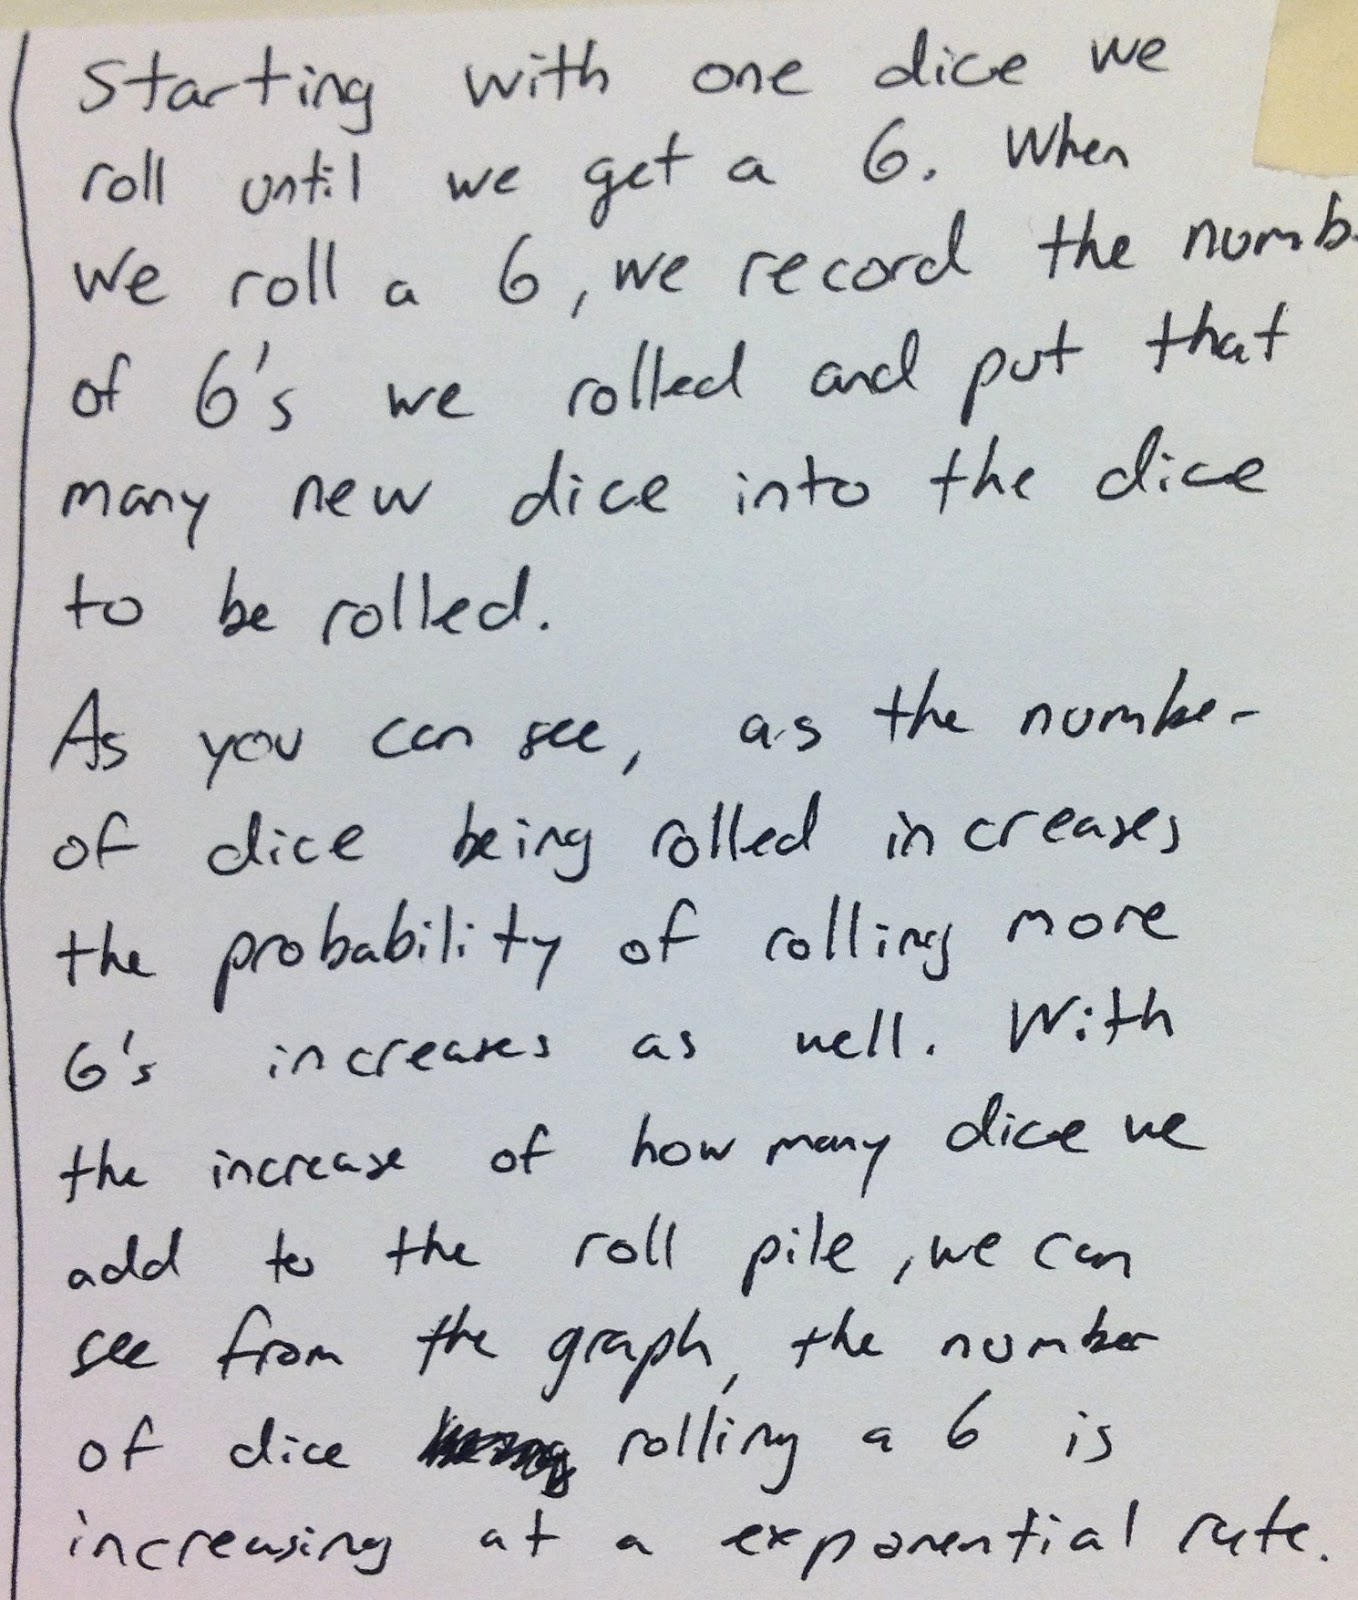 Starting with one dice we
roll until we get a 6. When
we roll a 6, we record the numb
of 6's we rolled and put that
many new dice into the dice
to be rolled.
As you can see, as the number
of dice being rolled increases
the probability of rolling more
6's increases as well. With
the increase of how many dice we
add to the roll pile, we can
see from the graph, the number
of dice rolling a 6 is
increasing at a exponential rate.